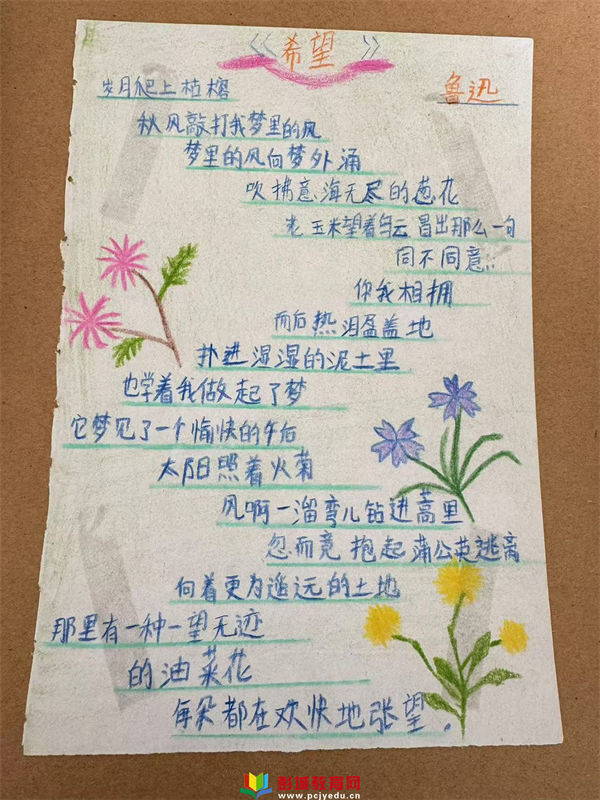 《希望》
鲁迅
岁月爬上枯榕
秋风敲打我梦里的风
梦里的风向梦外涌
吹拂意海无尽的葱花
老玉米望着乌云冒出那么一句
同不同意..
你我相拥
而后热泪盈盖地
扑进湿湿的泥土里
也学着我做起了梦
它梦见了一个愉快的午后
太阳照着火菊
风啊一溜弯儿钻进蒿里
忽而竟抱起蒲公英逃离
向着更为遥远的土地
那里有一种一望无迹
的油菜花
每朵都在欢快地张望.
彭城教育网
www.pcjyedu.cn